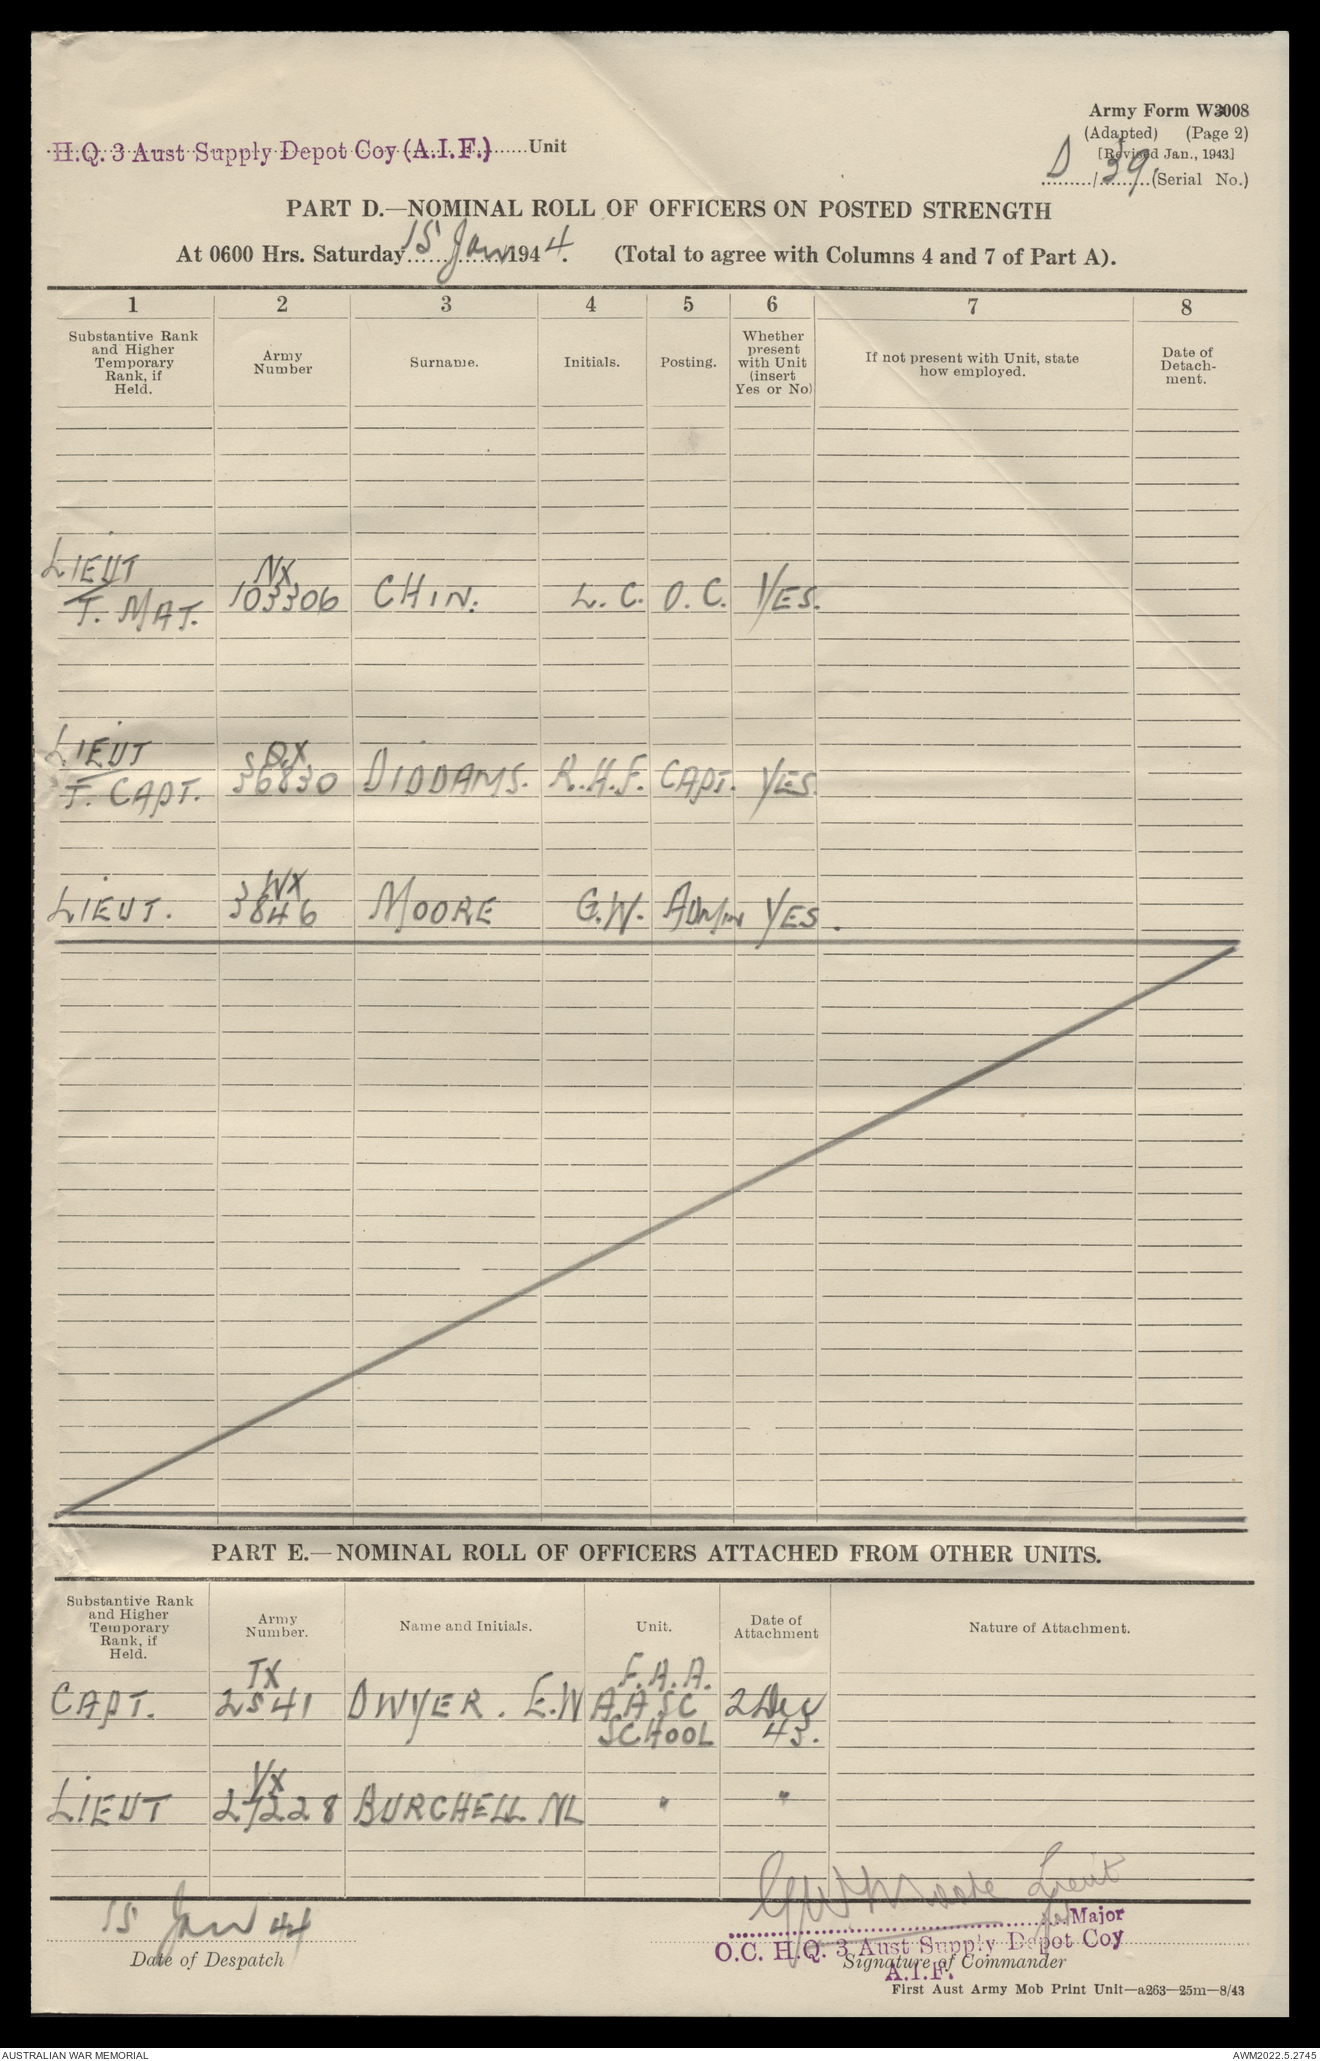 Army Form W3008
(Adapted) (Page 2)
[Revised Jan., 1943]
H.Q. 3 Aust Supply Depot Coy (A.I.F.) Unit
D / 39 (Serial No.)
PART D.—NOMINAL ROLL OF OFFICERS ON POSTED STRENGTH
At 0600 Hrs. Saturday 15 Jan 1944. (Total to agree with Columns 4 and 7 of Part A).
1 2 3 4 5 6 7 8
Substantive Rank and Higher Temporary Rank, if Held.
Army Number
Surname.
Initials.
Posting.
Whether present with Unit (insert Yes or No)
If not present with Unit, state how employed.
Date of Detach-ment.
LIEUT NX
T. MAJ. 103306 CHIN. L. C. O. C. YES.
LIEUT QX
T. CAPT. 36830 DIDDAMS. R.H.F. CAPT. YES.
WX
LIEUT. 3846 MOORE G.W. ADMIN YES.
PART E.—NOMINAL ROLL OF OFFICERS ATTACHED FROM OTHER UNITS.
Substantive Rank and Higher Temporary Rank, if Held.
Army Number.
Name and Initials.
Unit.
Date of Attachment
Nature of Attachment.
TX F.A.A.
CAPT. 2541 DWYER. E.W A.A.SC 2 Dec
SCHOOL 43.
VX
LIEUT 27228 BURCHELL NL " "
15 Jan 44
Date of Despatch
GW Moore Lieut
for Major
O.C. H.Q. 3 Aust Supply Depot Coy
A.I.F.
Signature of Commander
First Aust Army Mob Print Unit—a263—25m—8/43
AUSTRALIAN WAR MEMORIAL
AWM2022.5.2745